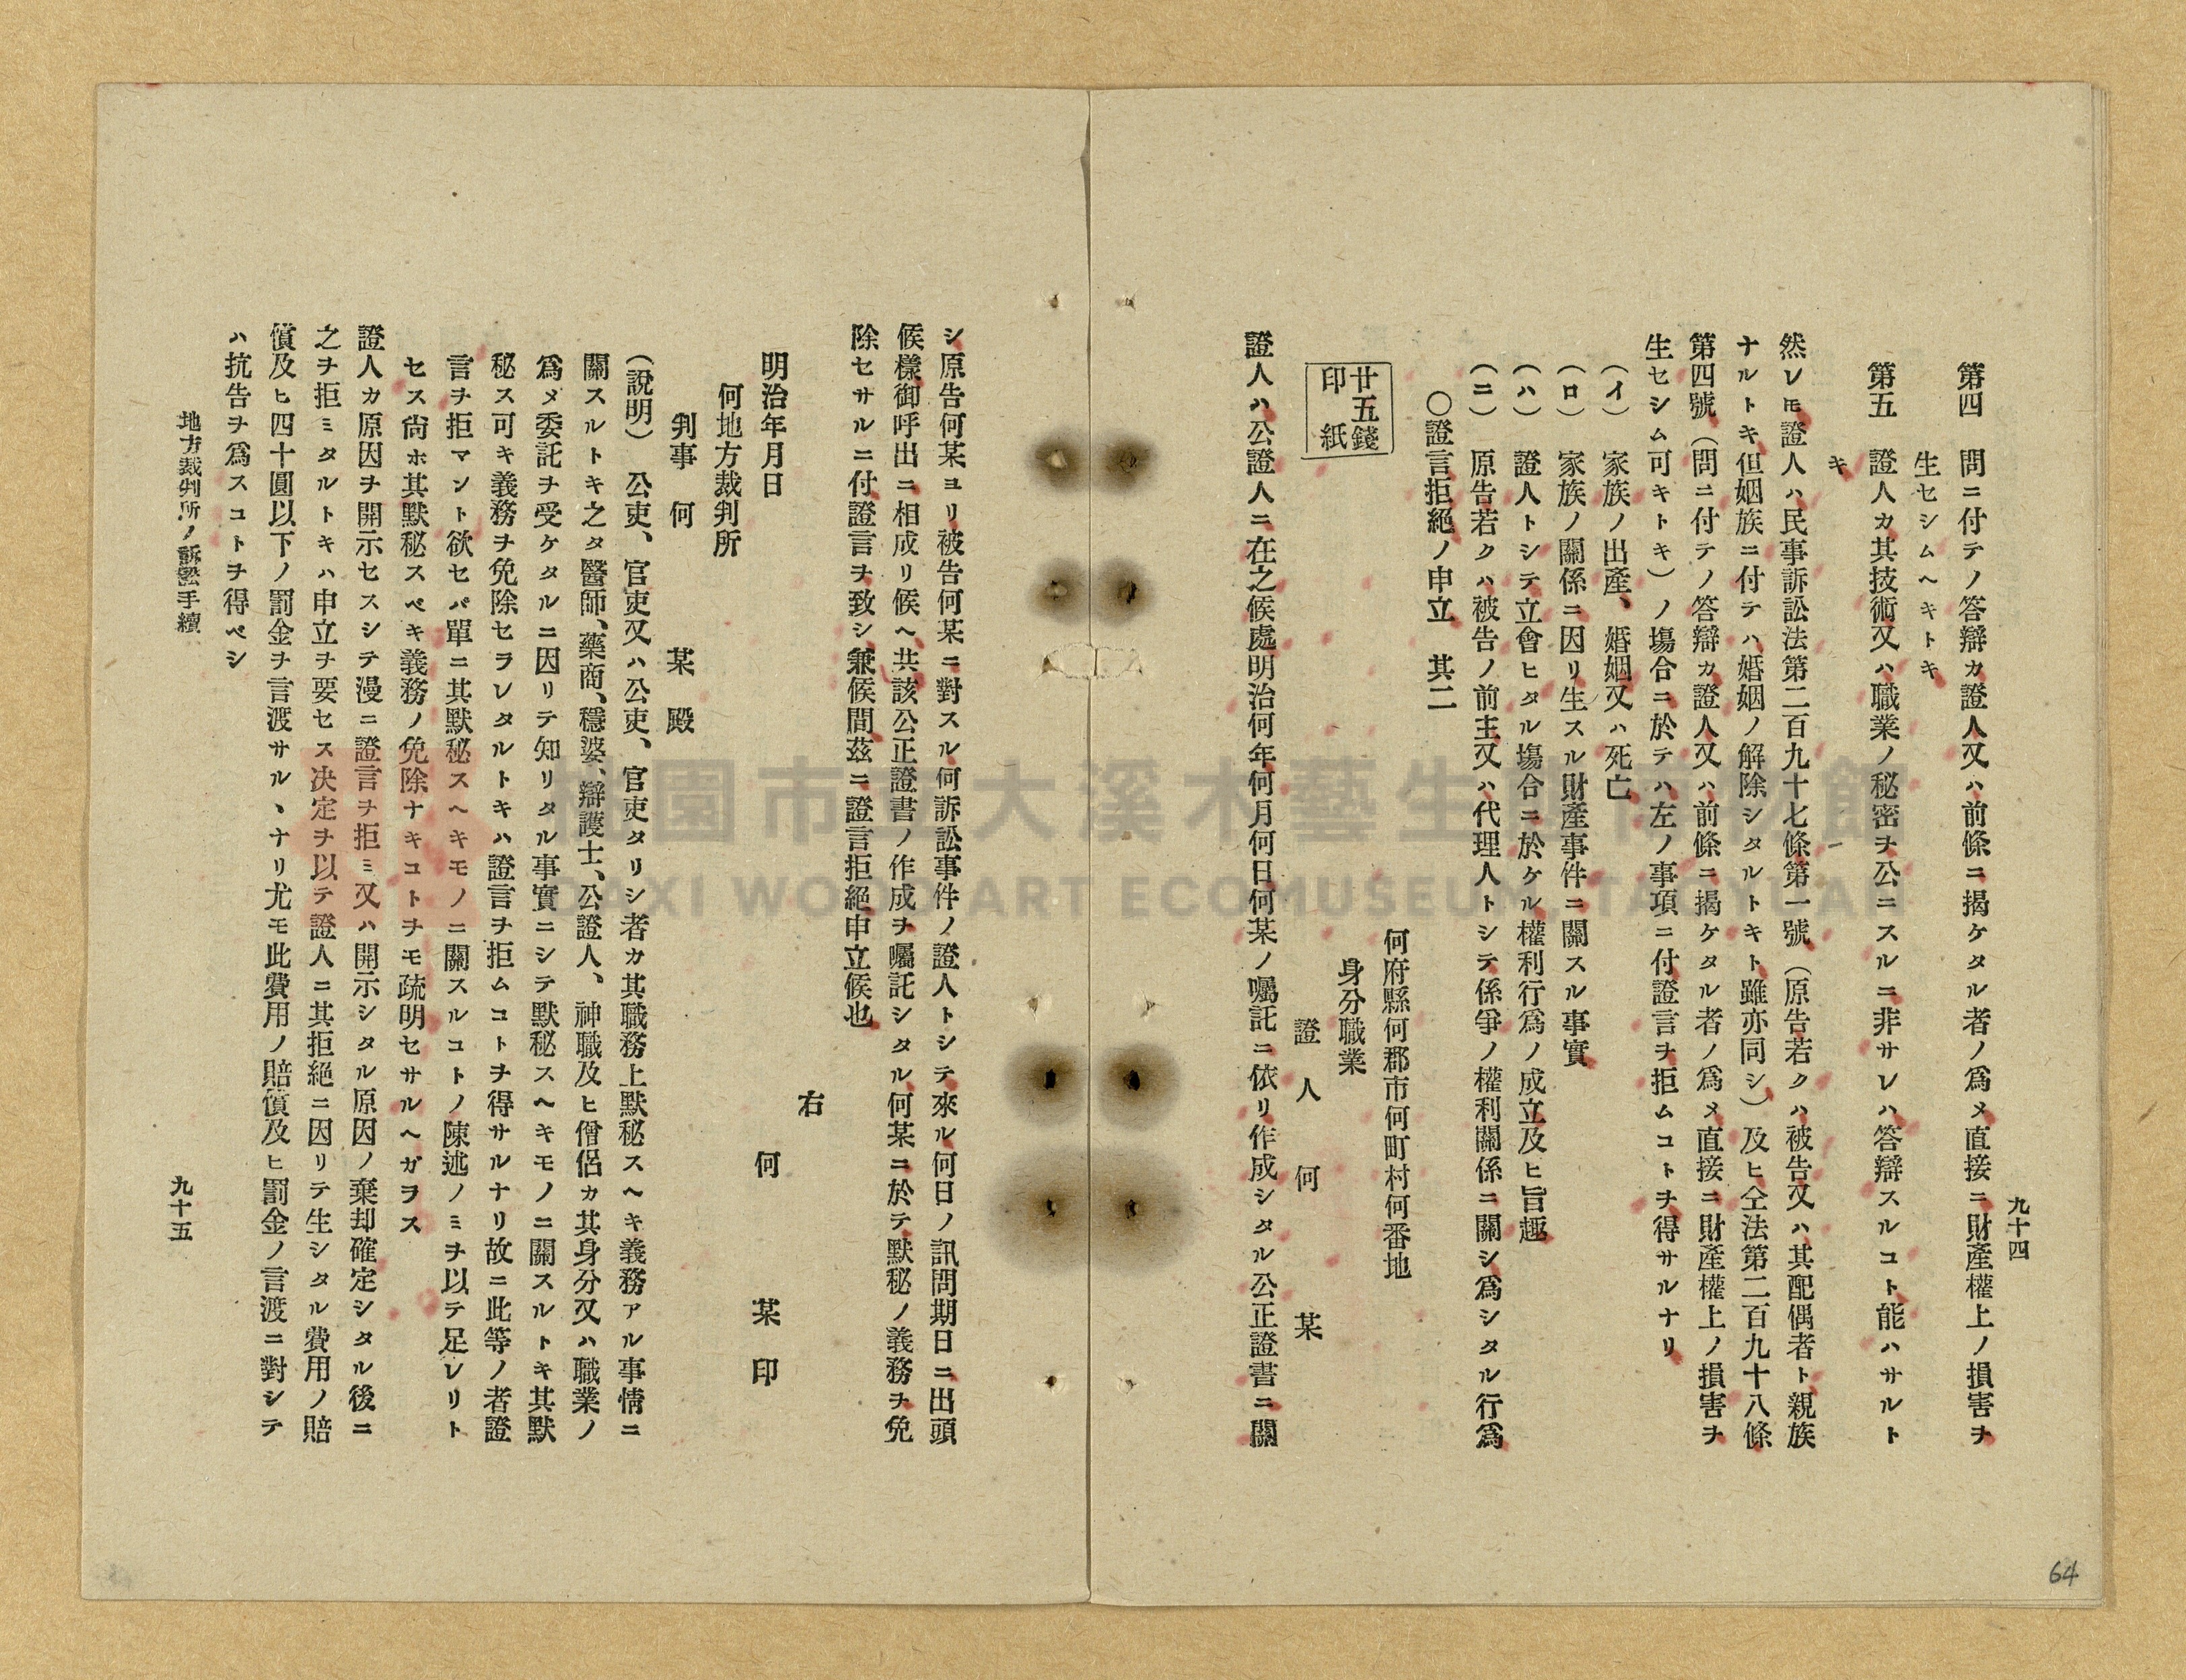 九十四
第四　問ニ付テノ答辯カ證人又ハ前條ニ揭ケタル者ノ爲メ直接ニ財產權上ノ損害ヲ
生セシムヘキトキ
第五　證人カ其技術又ハ職業ノ秘密ヲ公ニスルニ非サレハ答辯スルコト能ハサルト
キ
然レモ證人ハ民事訴訟法第二百九十七條第一號（原告若クハ被告又ハ其配偶者ト親族
ナルトキ但姻族ニ付テハ婚姻ノ解除シタルトキト雖亦同シ）及ヒ仝法第二百九十八條
第四號（問ニ付テノ答辯カ證人又ハ前條ニ揭ケタル者ノ爲メ直接ニ財產權上ノ損害ヲ
生セシム可キトキ）ノ塲合ニ於テハ左ノ事項ニ付證言ヲ拒ムコトヲ得サルナリ
（イ）　家族ノ出產、婚姻又ハ死亡
（ロ）　家族ノ關係ニ因リ生スル財產事件ニ關スル事實
（ハ）　證人トシテ立會ヒタル塲合ニ於ケル權利行爲ノ成立及ヒ旨趣
（ニ）　原告若クハ被告ノ前主又ハ代理人トシテ係爭ノ權利關係ニ關シ爲シタル行爲
〇證言拒絕ノ申立　其二
廿五錢
印紙
何府縣何郡市何町村何番地
身分職業
證人　何　某
證人ハ公證人ニ在之候處明治何年何月何日何某ノ囑託ニ依リ作成シタル公正證書ニ關
シ原告何某ヨリ被告何某ニ對スル何訴訟事件ノ證人トシテ來ル何日ノ訊問期日ニ出頭
候樣御呼出ニ相成リ候ヘ共該公正證書ノ作成ヲ囑託シタル何某ニ於テ默秘ノ義務ヲ免
除セサルニ付證言ヲ致シ兼候間茲ニ證言拒絕申立候也
右
明治年月日　何　某　印
何地方裁判所
判事　何　某　殿
（說明）　公吏、官吏又ハ公吏、官吏タリシ者カ其職務上默秘スヘキ義務アル事情ニ
關スルトキ之タ醫師、藥商、穩婆、辯護士、公證人、神職及ヒ僧侶カ其身分又ハ職業ノ
爲メ委託ヲ受ケタルニ因リテ知リタル事實ニシテ默秘スヘキモノニ關スルトキ其默
秘ス可キ義務ヲ免除セラレタルトキハ證言ヲ拒ムコトヲ得サルナリ故ニ此等ノ者證
言ヲ拒マント欲セバ單ニ其默秘スヘキモノニ關スルコトノ陳述ノミヲ以テ足レリト
セス尙ホ其默秘スベキ義務ノ免除ナキコトヲモ疏明セサルヘガラス
證人カ原因ヲ開示セスシテ漫ニ證言ヲ拒ミ又ハ開示シタル原因ノ棄却確定シタル後ニ
之ヲ拒ミタルトキハ申立ヲ要セス決定ヲ以テ證人ニ其拒絕ニ因リテ生シタル費用ノ賠
償及ヒ四十圓以下ノ罰金ヲ言渡サルヽナリ尤モ此費用ノ賠償及ヒ罰金ノ言渡ニ對シテ
ハ抗告ヲ爲スコトヲ得ベシ
地方裁判所ノ訴訟手續　九十五
64
DAXI WOOD ART ECOMUSEUM TAOYUAN